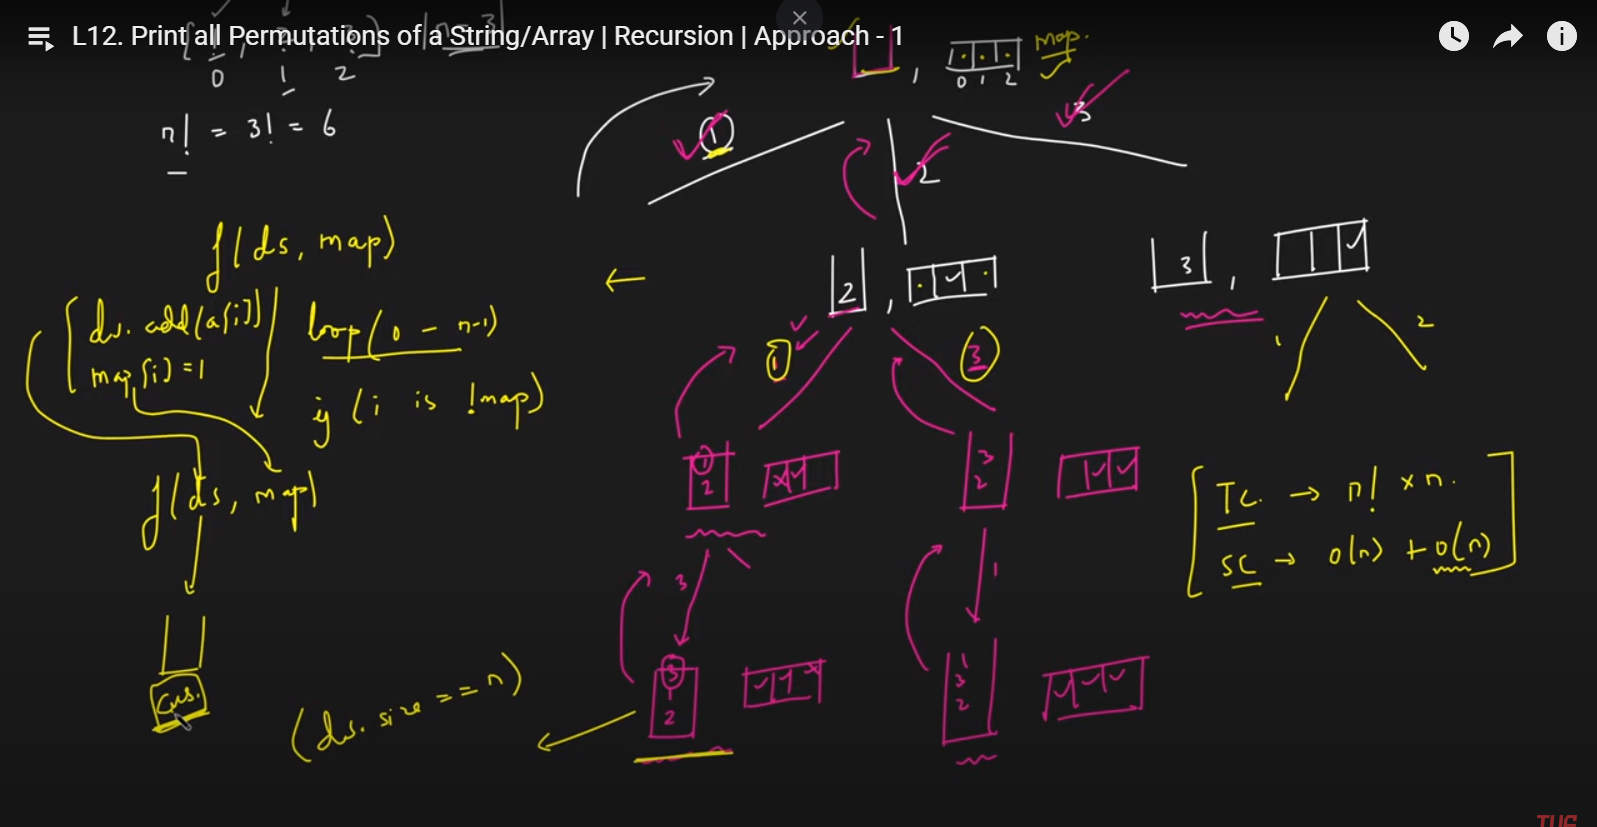 L12. Print all Permutations of a String/Array | Recursion | Approach - 1
n = 3
0 1 2
n! = 3! = 6
map.
0 1 2
1
2
3
f(ds, map)
ds. add(a[i])
map[i] = 1
loop(0 - n-1)
if (i is !map)
f(ds, map)
ans.
(ds. size == n)
2
3
1
3
1
2
1
2
3
2
3
1
3
1
2
1
3
2
TC. → n! × n.
SC → O(n) + O(n)
TUF